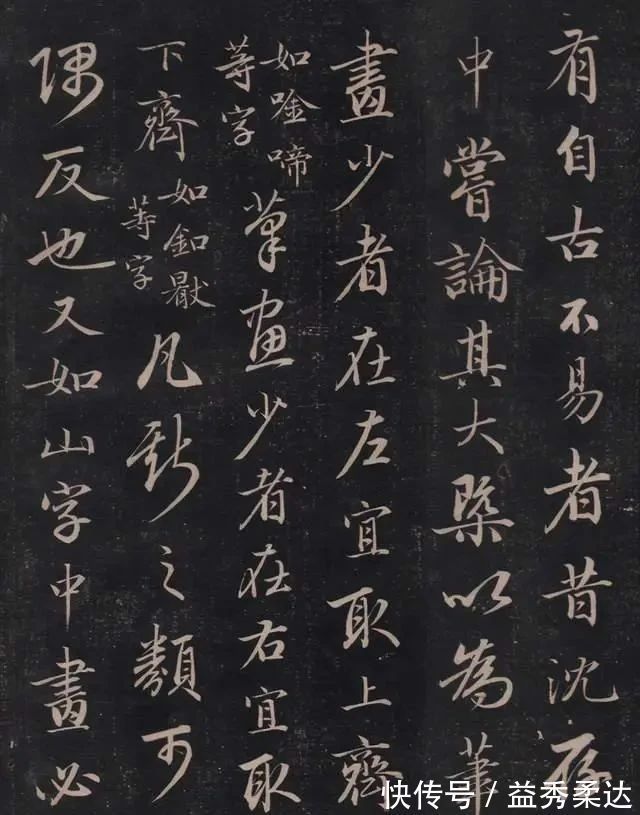 有自古不易者昔沈存
中嘗論其大槩以為筆
畫少者在左宜取上齊
如唫啼
等字
筆畫少者在右宜取
下齊
如釦
等字
凡斯之類可
隅反也又如山字中畫必
快传号 / 益秀柔达